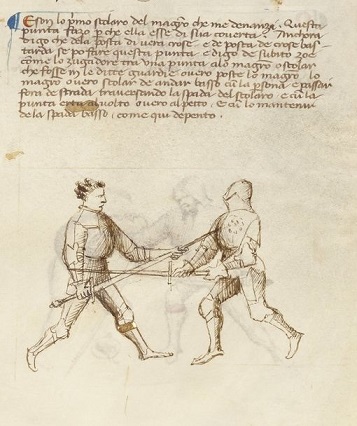 E son lo primo scolaro del magro che me denanza. Questa
punta fazo p che ella esse di sua coverta. Anchora
digo che dela posta di vera crose e de posta de crose bas
tarda se po ffare questa punta. E digo de subito zoe
come lo zugadore tra una punta alo magro o scolar
che fosse in le ditte guardie overo poste lo magro lo
magro overo scolar de andar basso cu la psona e passar
fora de strada traversando la spada del scolaro e cu la
punta erta al volto overo al petto. E cu lo mantenir
dela spada basso, come qui depento.